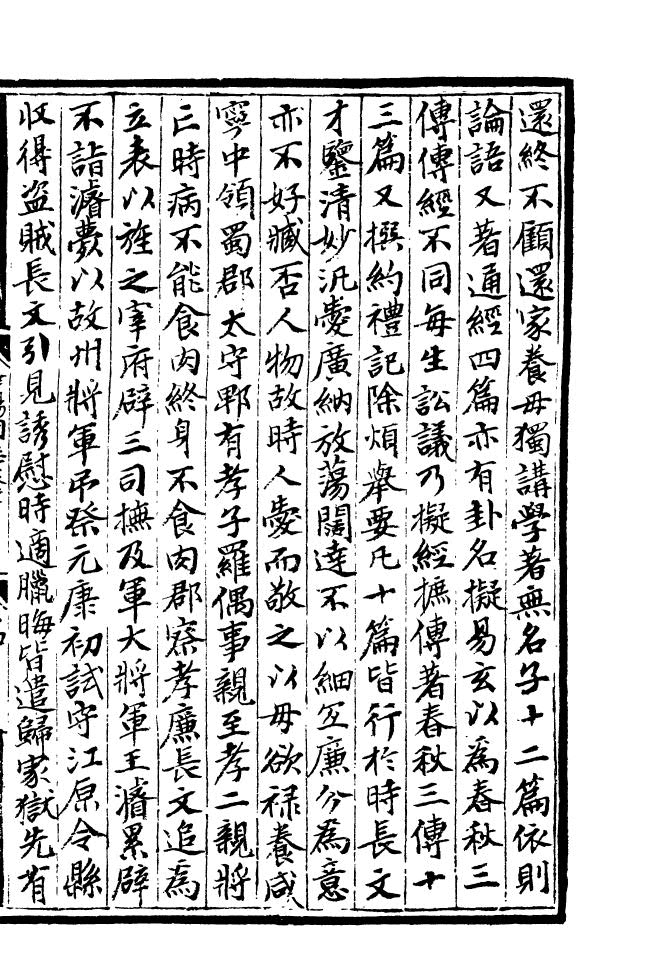 還終不顧還家養母獨講學著無名子十二篇依則
論語又著通經四篇亦有卦名擬易玄以為春秋三
傳傳經不同每生訟議乃擬經摭傳著春秋三傳十
三篇又撰約禮記除煩舉要凡十篇皆行於時長文
才鑒清妙汎愛廣納放蕩闊達不以細宐廉介為意
亦不好臧否人物故時人愛而敬之以母欲祿養咸
寧中領蜀郡太守郫有孝子羅偶事親至孝二親將
亡時病不能食肉終身不食肉郡察孝廉長文追為
立表以旌之宰府辟三司撫及軍大將軍王濬累辟
不詣濬薨以故州將軍弔祭元康初試守江原令縣
收得盜賊長文引見誘慰時適臘晦皆遣歸家獄先有